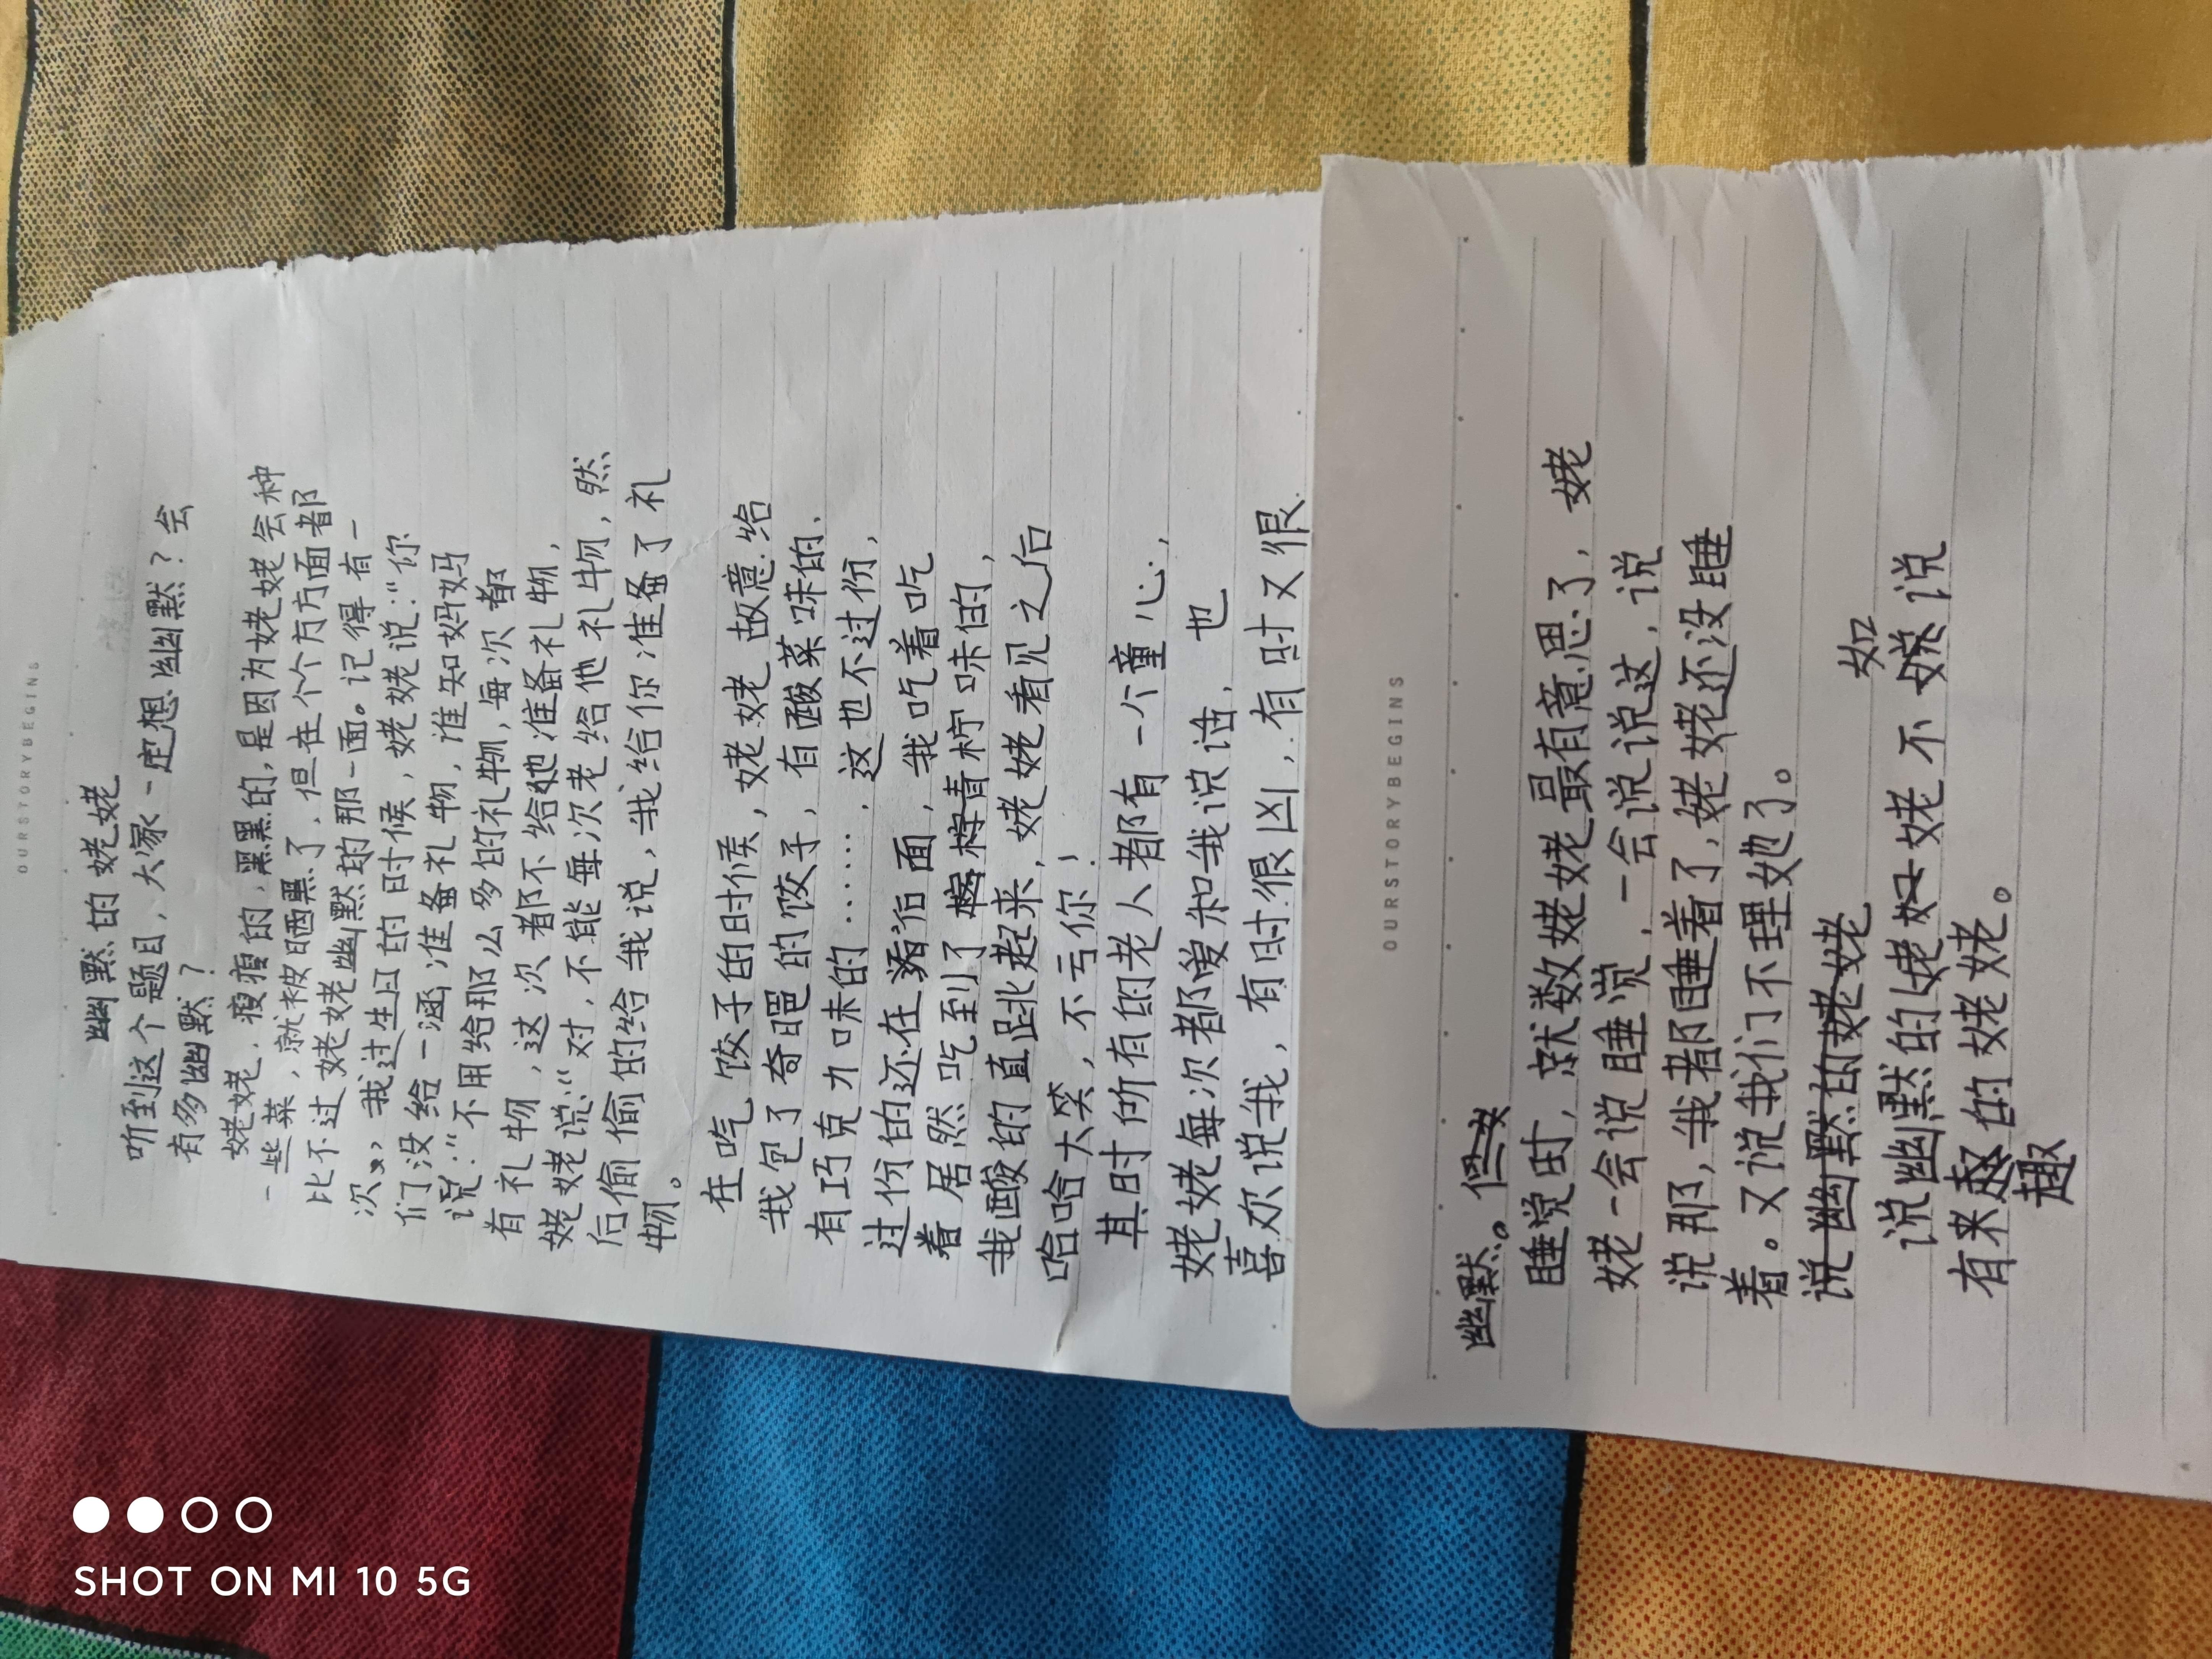 OURSTORYBEGINS
幽默的姥姥
听到这个题目，大家一定想幽默？会
有多幽默？
姥姥，瘦瘦的，黑黑的，是因为姥姥会种
一些菜，就被晒黑了，但在个个方面都
比不过姥姥幽默的那一面。记得有一
次，我过生日的时候，姥姥说：“你
们没给一涵准备礼物，谁知妈妈
说：“不用给那么多的礼物，每次都
有礼物，这次都不给她准备礼物，
姥姥说：“对，不能每次老给他礼物，然
后偷偷的给我说，我给你准备了礼
物。
在吃饺子的时候，姥姥故意给
我包了奇葩的饺子，有酸菜味的，
有巧克力味的……，这也不过份，
过份的还在后面，我吃着吃
着居然吃到了青柠味的，
我酸的直跳起来，姥姥看见之后
哈哈大笑，不亏你！
其时所有的老人都有一个童心，
姥姥每次都爱和我说话，也
喜欢说我，有时很凶，有时又很
OURSTORYBEGINS
幽默。但女
睡觉时，就数姥姥最有意思了，姥
姥一会说睡觉，一会说说这，说
说那，我都睡着了，姥姥还没睡
着。又说我们不理她了。
说幽默的姥姥
如
说幽默的姥姥不说
有来的姥姥。
趣
SHOT ON MI 10 5G